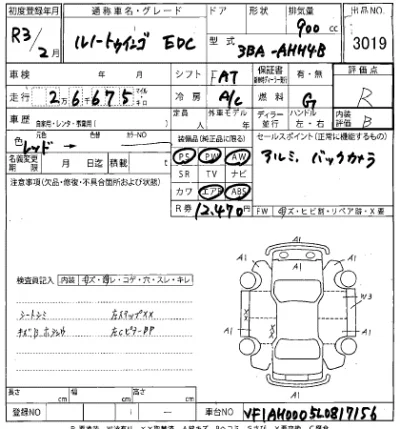 初度登録年月 通称車名・グレード ドア 形状 排気量 出品NO
R3/2月 ルノートゥインゴ EDC 900 cc 3019
型式 3BA-AHH4B
車検 年 月 シフト FAT 保証書 有・無 評価点 R
走行 2万6千675 マイル キロ 冷房 A/C 燃料 G
車歴 自家用・レンタ・事業用 定員 人 外車モデル 年 ディーラー 並行 ハンドル 左・右 内装評価 B
元色 色替 カラーNO
レッド →
装備品(純正品に限る) セールスポイント(正常に機能するもの)
PS PW AW アルミ、バックカメラ
名義変更期限 月 日迄 積載 t
SR TV ナビ
注意事項(欠品・修復・不具合箇所及び状態)
カワ エアB ABS
R券 12,470円
FW キズ・ヒビ割・リペア跡・X要
A1
A1 A1
検査員記入 内装 キズ・汚レ・コゲ・穴・スレ・キレ
W3
シートシミ 左ステップXX
XX
A1 A1
A1
長さ cm 幅 cm 高さ cm
登録NO 車台NO VF1AH0005L0817156